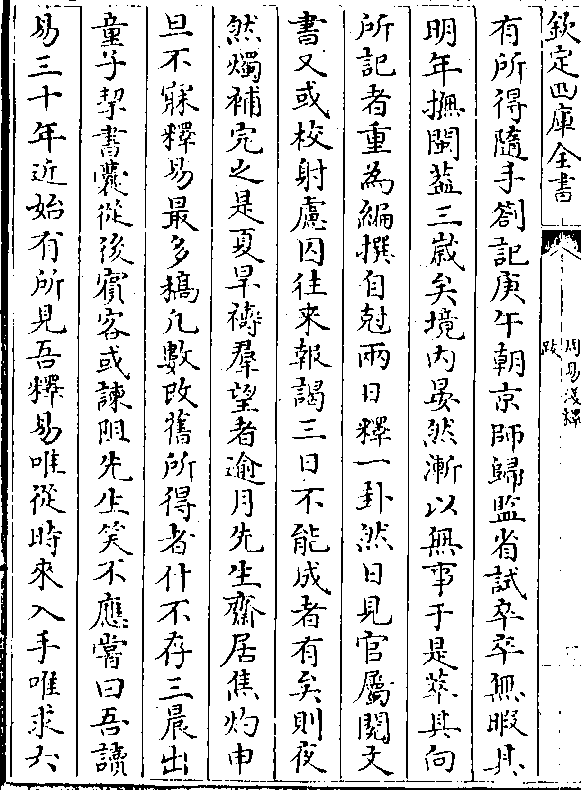 欽定四庫全書
周易淺釋
跋
有所得隨手劄記庚午朝京師歸監省試卒卒無暇其
明年撫閩葢三歲矣境内晏然漸以無事于是萃其向
所記者重為編撰自尅兩日釋一卦然日見官屬閱文
書又或校射慮囚往來報謁三日不能成者有矣則夜
然燭補完之是夏旱禱羣望者逾月先生齋居焦灼申
旦不寐釋易最多稿凡數改舊所得者什不存三晨出
童子挈書囊從後賓客或諫阻先生笑不應嘗曰吾讀
易三十年近始有所見吾釋易唯從時來入手唯求六